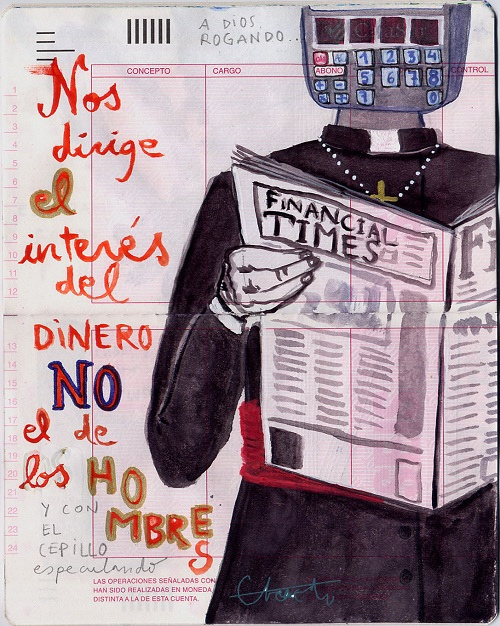 A DIOS
ROGANDO...
1 2 3 4
5 6 7 8
0
CONCEPTO CARGO ABONO CONTROL
Nos
dirige
el
interés
del
DINERO
NO
el de
los HO
MBRE
S
Y CON
EL
CEPILLO
especulando
FINANCIAL
TIMES
F
1
2
3
4
5
6
7
8
9
10
11
12
13
14
15
16
17
18
19
20
21
22
23
24
LAS OPERACIONES SEÑALADAS CON
HAN SIDO REALIZADAS EN MONEDA
DISTINTA A LA DE ESTA CUENTA.